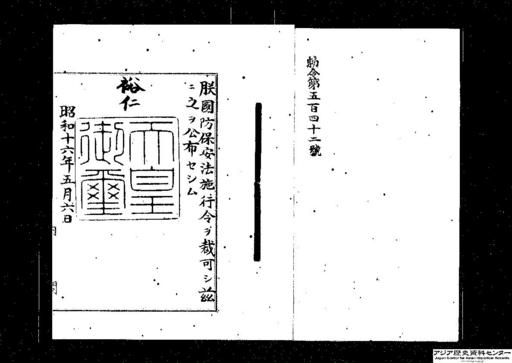 勅令第五百四十二號
朕國防保安法施行令ヲ裁可シ茲
ニ之ヲ公布セシム
裕仁
天皇
御璽
昭和十六年五月六日
アジア歴史資料センター
Japan Center for Asian Historical Records